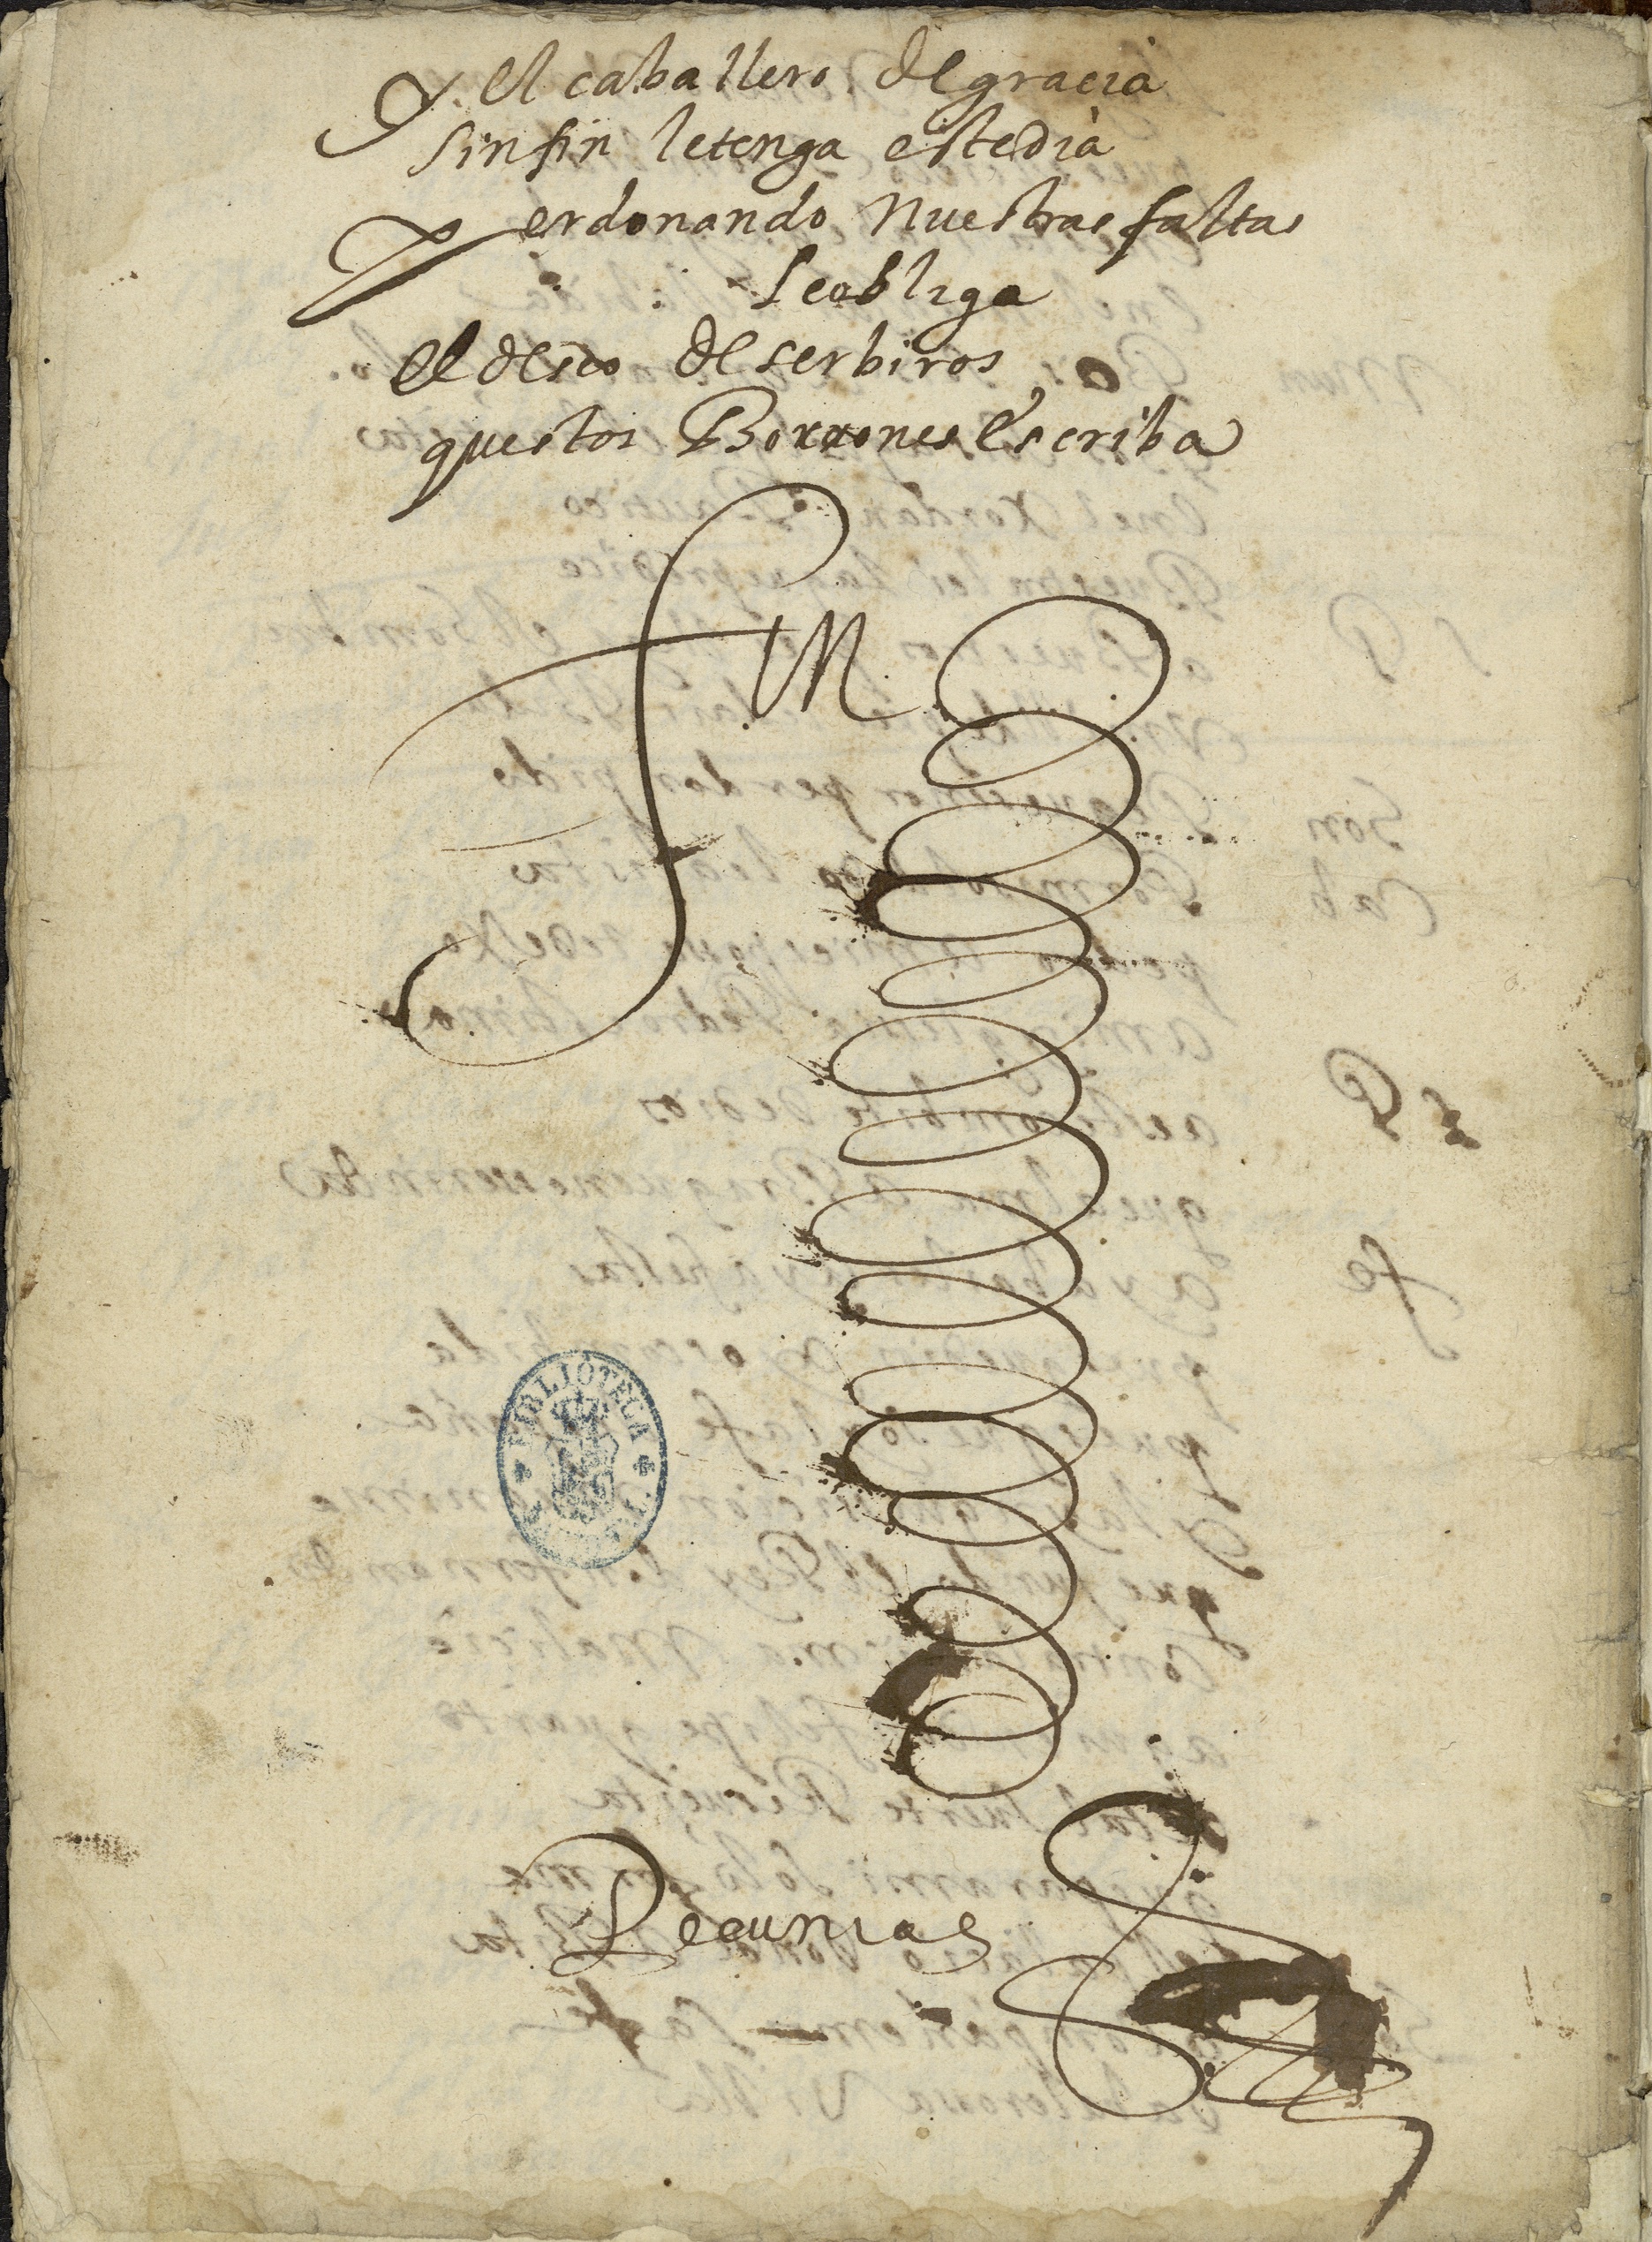 y. el caballero de gracia
sinfin letenga estedia
perdonando nuestras faltas
seobliga
el deseo de serbiros
questos Borrones escriba
Fin
BIBLIOTECA
Pecunias